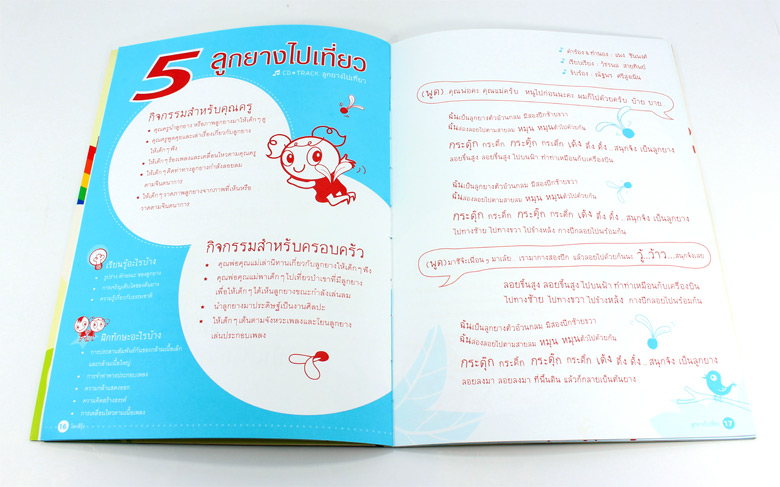 5 ลูกยางไปเที่ยว
CD TRACK ลูกยางไปเที่ยว
กิจกรรมสำหรับคุณครู
• คุณครูนำลูกยาง หรือภาพลูกยางมาให้เด็กๆ ดู
• คุณครูพูดคุยและเล่าเรื่องเกี่ยวกับลูกยาง
ให้เด็กๆ ฟัง
• ให้เด็กๆ ร้องเพลงและเคลื่อนไหวตามคุณครู
• ให้เด็กๆ คิดท่าทางลูกยางกำลังลอยลม
ตามจินตนาการ
• ให้เด็กๆ วาดภาพลูกยางจากภาพที่เห็นหรือ
วาดตามจินตนาการ
กิจกรรมสำหรับครอบครัว
• คุณพ่อคุณแม่เล่านิทานเกี่ยวกับลูกยางให้เด็กๆ ฟัง
• คุณพ่อคุณแม่พาเด็กๆ ไปเที่ยวป่าเขาที่มีลูกยาง
เพื่อให้เด็กๆ ได้เห็นลูกยางขณะกำลังเล่นลม
• นำลูกยางมาประดิษฐ์เป็นงานศิลปะ
• ให้เด็กๆ เต้นตามจังหวะเพลงและโยนลูกยาง
เล่นประกอบเพลง
เรียนรู้อะไรบ้าง
• รูปร่าง ลักษณะ ของลูกยาง
• การเจริญเติบโตของต้นยาง
• ความรู้เกี่ยวกับธรรมชาติ
ฝึกทักษะอะไรบ้าง
• การประสานสัมพันธ์กันของกล้ามเนื้อเล็ก
และกล้ามเนื้อใหญ่
• การทำท่าทางประกอบเพลง
• ความกล้าแสดงออก
• ความคิดสร้างสรรค์
• การเคลื่อนไหวตามเนื้อเพลง
16
คำร้อง & ทำนอง :
เรียบเรียง : วีรานล สายทิพย์
ขับร้อง : ณัฐพร ศรีสูงเนิน
(พูด) คุณพ่อคะ คุณแม่ครับ หนูไปก่อนนะคะ ผมก็ไปด้วยครับ บ๊าย บาย
ฉันเป็นลูกยางตัวอ้วนกลม มีสองปีกซ้ายขวา
ฉันล่องลอยไปตามสายลม หมุน หมุนตัวไปด้วยกัน
กระดุ๊ก กระดิ๊ก กระดุ๊ก กระดิ๊ก เด้ง ดึ๋ง ดึ๋ง...สนุกจัง เป็นลูกยาง
ลอยขึ้นสูง ลอยขึ้นสูง ไปบนฟ้า ทำท่าเหมือนกับเครื่องบิน
ฉันเป็นลูกยางตัวอ้วนกลม มีสองปีกซ้ายขวา
ฉันล่องลอยไปตามสายลม หมุน หมุนตัวไปด้วยกัน
กระดุ๊ก กระดิ๊ก กระดุ๊ก กระดิ๊ก เด้ง ดึ๋ง ดึ๋ง...สนุกจัง เป็นลูกยาง
ไปทางซ้าย ไปทางขวา ไปข้างหลัง กางปีกลอยไปพร้อมกัน
(พูด) มาซิจ๊ะเพื่อนๆ มาเล้ย.. เรามากางสองปีก แล้วลอยไปด้วยกันนะ วู้..ว้าว...สนุกจังเลย
ลอยขึ้นสูง ลอยขึ้นสูง ไปบนฟ้า ทำท่าเหมือนกับเครื่องบิน
ไปทางซ้าย ไปทางขวา ไปข้างหลัง กางปีกลอยไปพร้อมกัน
ฉันเป็นลูกยางตัวอ้วนกลม มีสองปีกซ้ายขวา
ฉันล่องลอยไปตามสายลม หมุน หมุนตัวไปด้วยกัน
กระดุ๊ก กระดิ๊ก กระดุ๊ก กระดิ๊ก เด้ง ดึ๋ง ดึ๋ง...สนุกจัง เป็นลูกยาง
ลอยลงมา ลอยลงมา ที่พื้นดิน แล้วก็กลายเป็นต้นยาง
ลูกยางไปเที่ยว 17